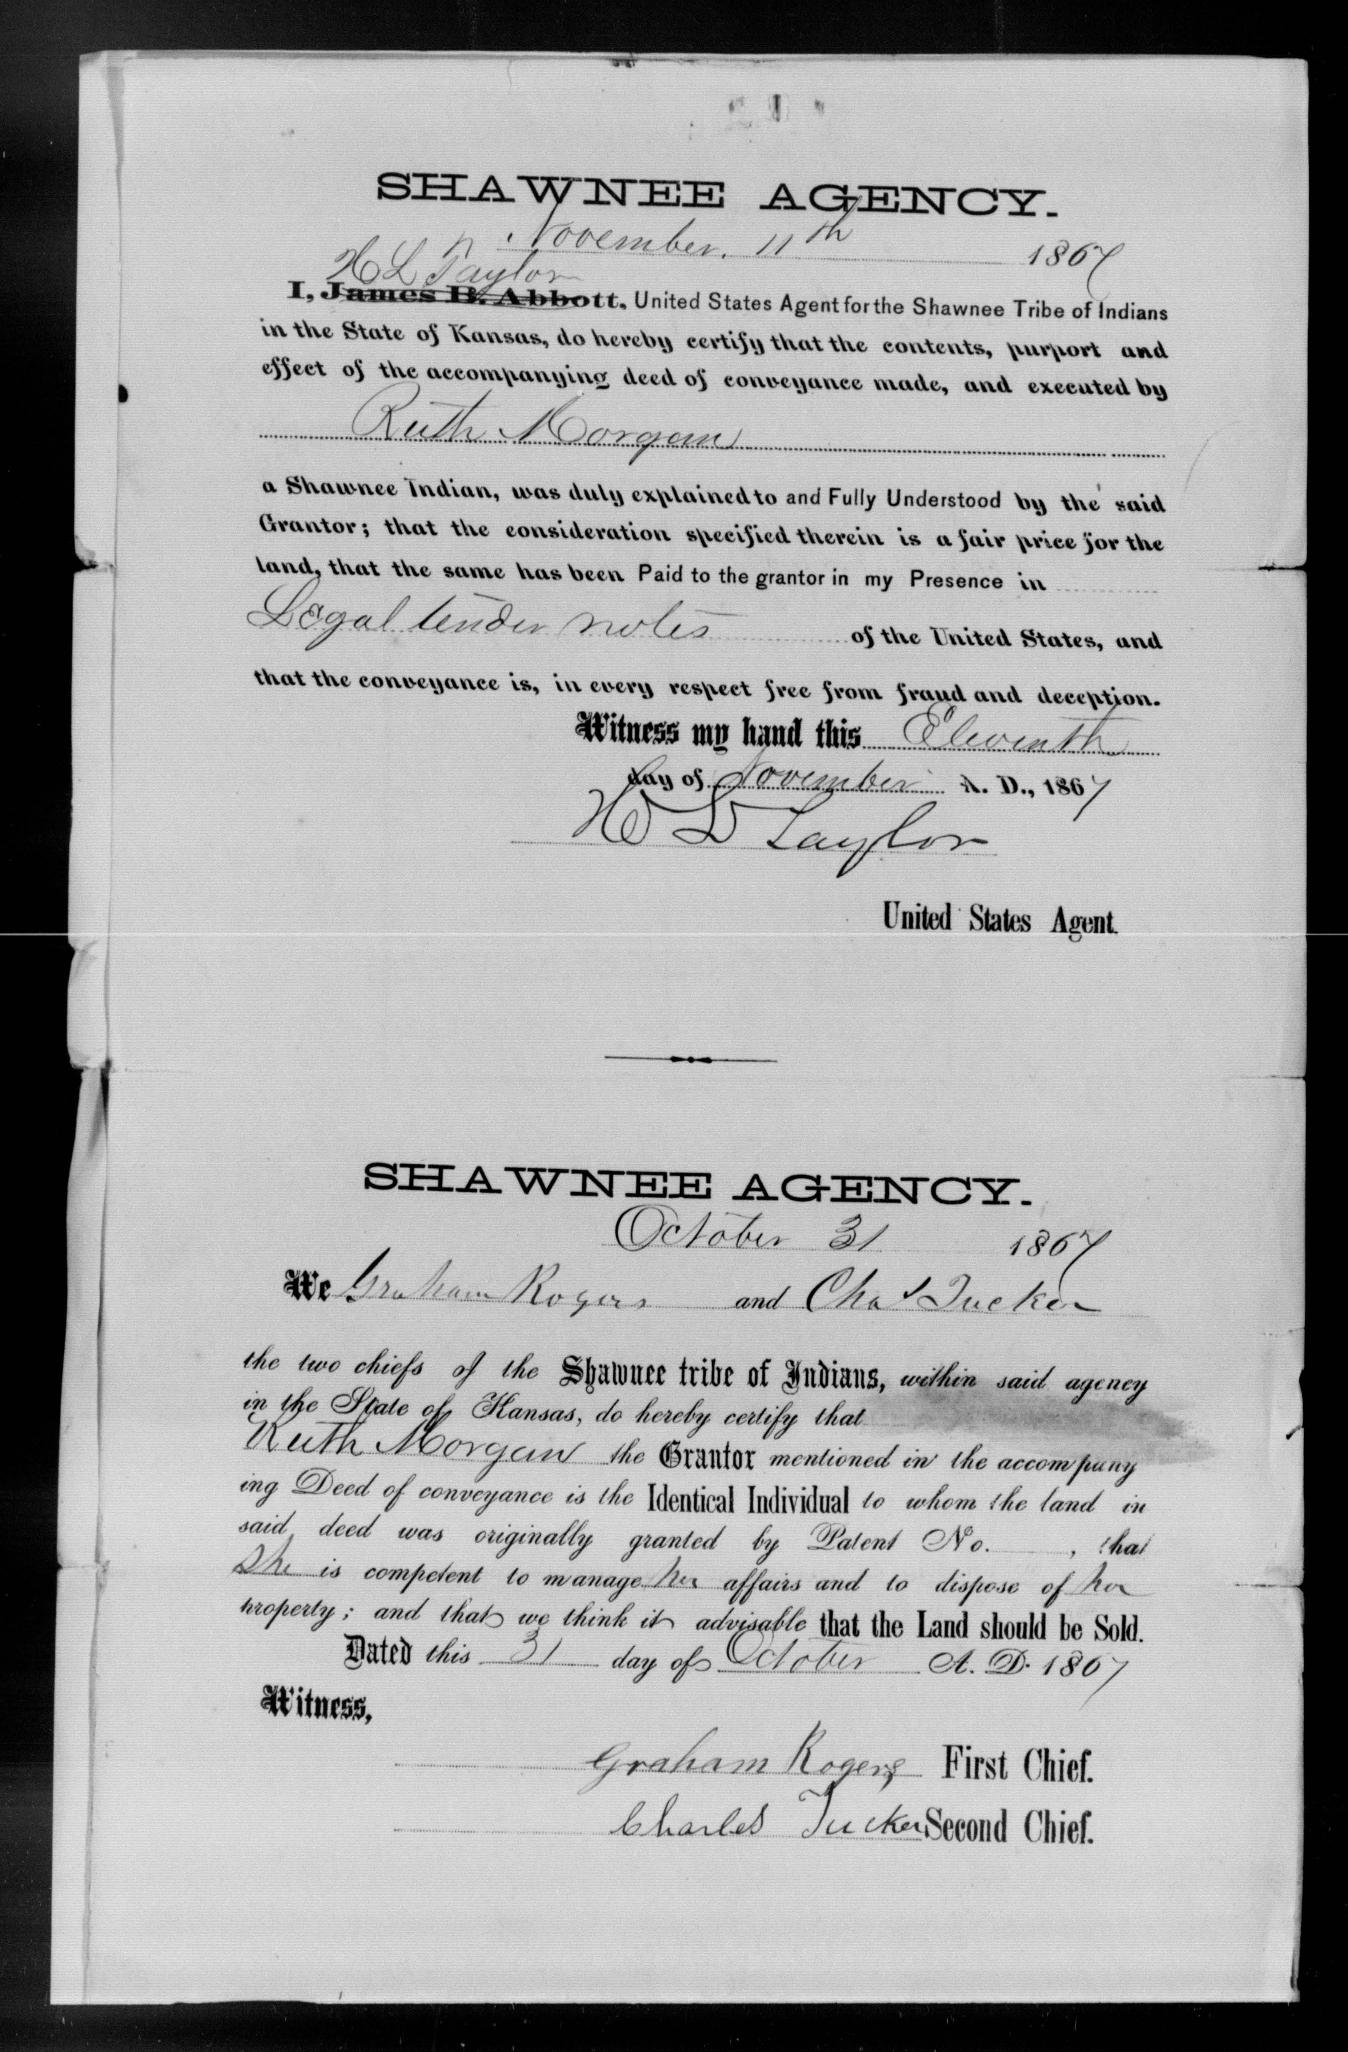 SHAWNEE AGENCY.
November. 11th 1867
H L Taylor
I, James B. Abbott, United States Agent for the Shawnee Tribe of Indians
in the State of Kansas, do hereby certify that the contents, purport and
effect of the accompanying deed of conveyance made, and executed by
Ruth Morgan
a Shawnee Indian, was duly explained to and Fully Understood by the said
Grantor; that the consideration specified therein is a fair price for the
land, that the same has been Paid to the grantor in my Presence in
Legal tender notes of the United States, and
that the conveyance is, in every respect free from fraud and deception.
Witness my hand this Eleventh
day of November A. D., 1867
H L Taylor
United States Agent.
SHAWNEE AGENCY.
October 31 1867
We Graham Rogers and Chas Tucker
the two chiefs of the Shawnee tribe of Indians, within said agency
in the State of Kansas, do hereby certify that
Ruth Morgan the Grantor mentioned in the accompany
ing Deed of conveyance is the Identical Individual to whom the land in
said deed was originally granted by Patent No. , that
She is competent to manage her affairs and to dispose of her
property; and that we think it advisable that the Land should be Sold.
Dated this 31 day of October A. D. 1867
Witness,
Graham Rogers First Chief.
Charles Tucker Second Chief.